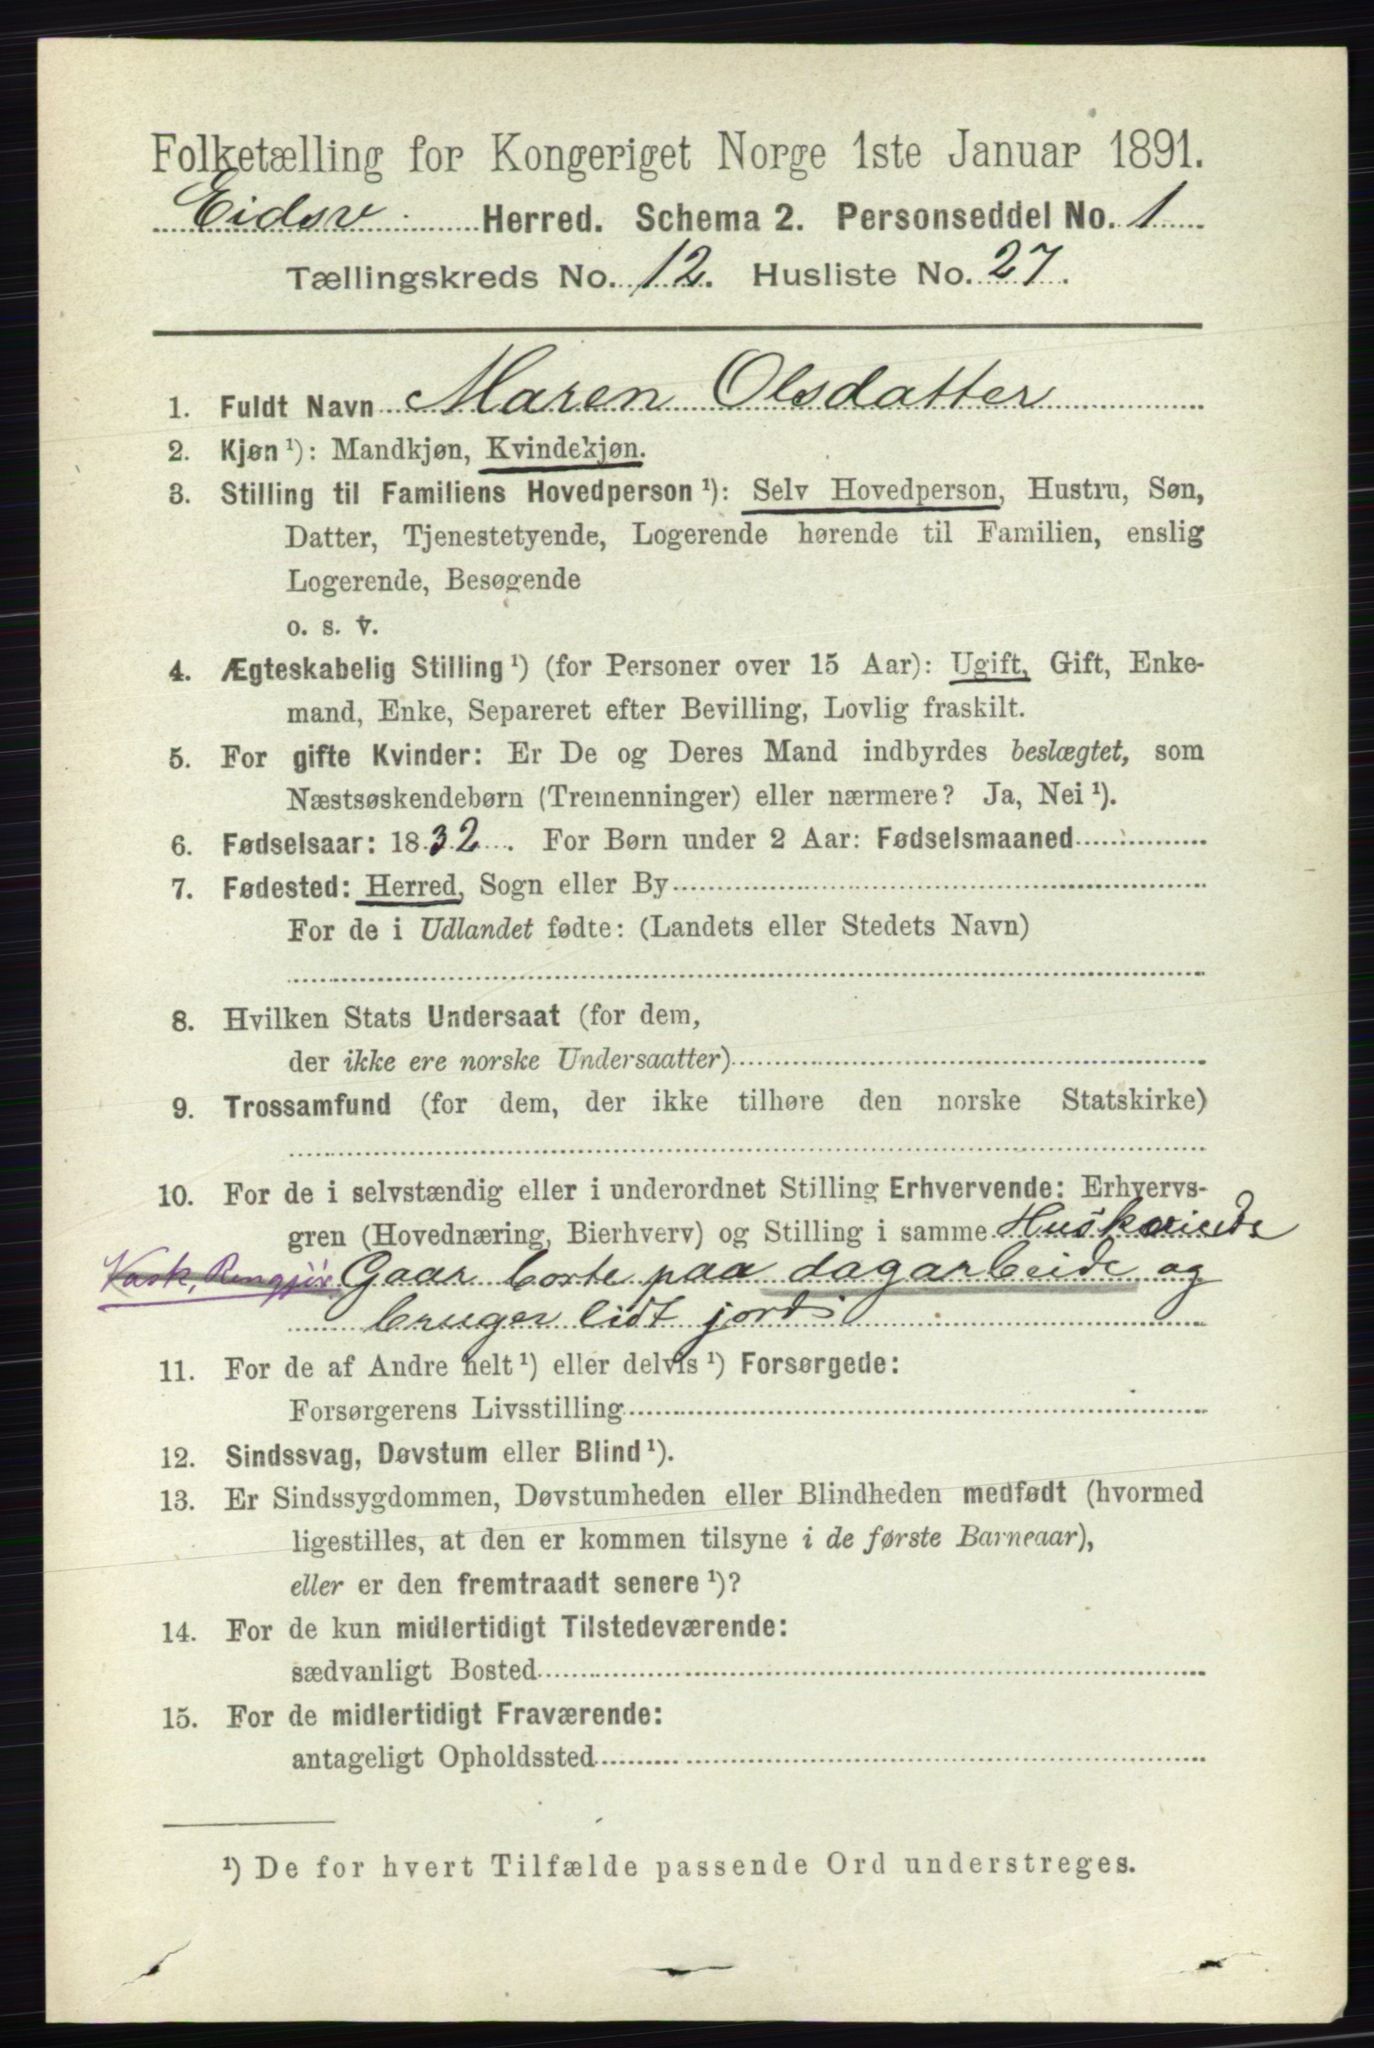 Folketælling for Kongeriget Norge 1ste Januar 1891.
Eidsv Herred. Schema 2. Personseddel No. 1
Tællingskreds No. 12. Husliste No. 27.
1. Fuldt Navn Maren Olsdatter
2. Kjøn ¹): Mandkjøn, Kvindekjøn.
3. Stilling til Familiens Hovedperson ¹): Selv Hovedperson, Hustru, Søn,
Datter, Tjenestetyende, Logerende hørende til Familien, enslig
Logerende, Besøgende
o. s. v.
4. Ægteskabelig Stilling ¹) (for Personer over 15 Aar): Ugift, Gift, Enke-
mand, Enke, Separeret efter Bevilling, Lovlig fraskilt.
5. For gifte Kvinder: Er De og Deres Mand indbyrdes beslægtet, som
Næstsøskendebørn (Tremenninger) eller nærmere? Ja, Nei ¹).
6. Fødselsaar: 1832. For Børn under 2 Aar: Fødselsmaaned
7. Fødested: Herred, Sogn eller By
For de i Udlandet fødte: (Landets eller Stedets Navn)
8. Hvilken Stats Undersaat (for dem,
der ikke ere norske Undersaatter)
9. Trossamfund (for dem, der ikke tilhøre den norske Statskirke)
10. For de i selvstændig eller i underordnet Stilling Erhvervende: Erhvervs-
gren (Hovednæring, Bierhverv) og Stilling i samme Huskvinde
Vask, Rengjør Gaar borte paa dagarbeide og
bruger lidt jord
11. For de af Andre helt ¹) eller delvis ¹) Forsørgede:
Forsørgerens Livsstilling
12. Sindssvag, Døvstum eller Blind ¹).
13. Er Sindssygdommen, Døvstumheden eller Blindheden medfødt (hvormed
ligestilles, at den er kommen tilsyne i de første Barneaar),
eller er den fremtraadt senere ¹)?
14. For de kun midlertidigt Tilstedeværende:
sædvanligt Bosted
15. For de midlertidigt Fraværende:
antageligt Opholdssted
¹) De for hvert Tilfælde passende Ord understreges.